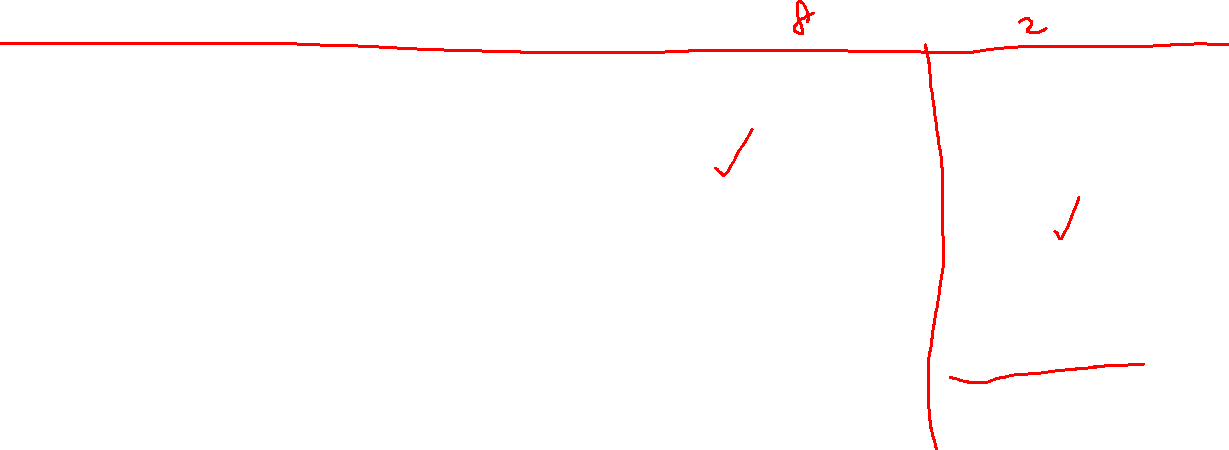 8 2
✓
✓